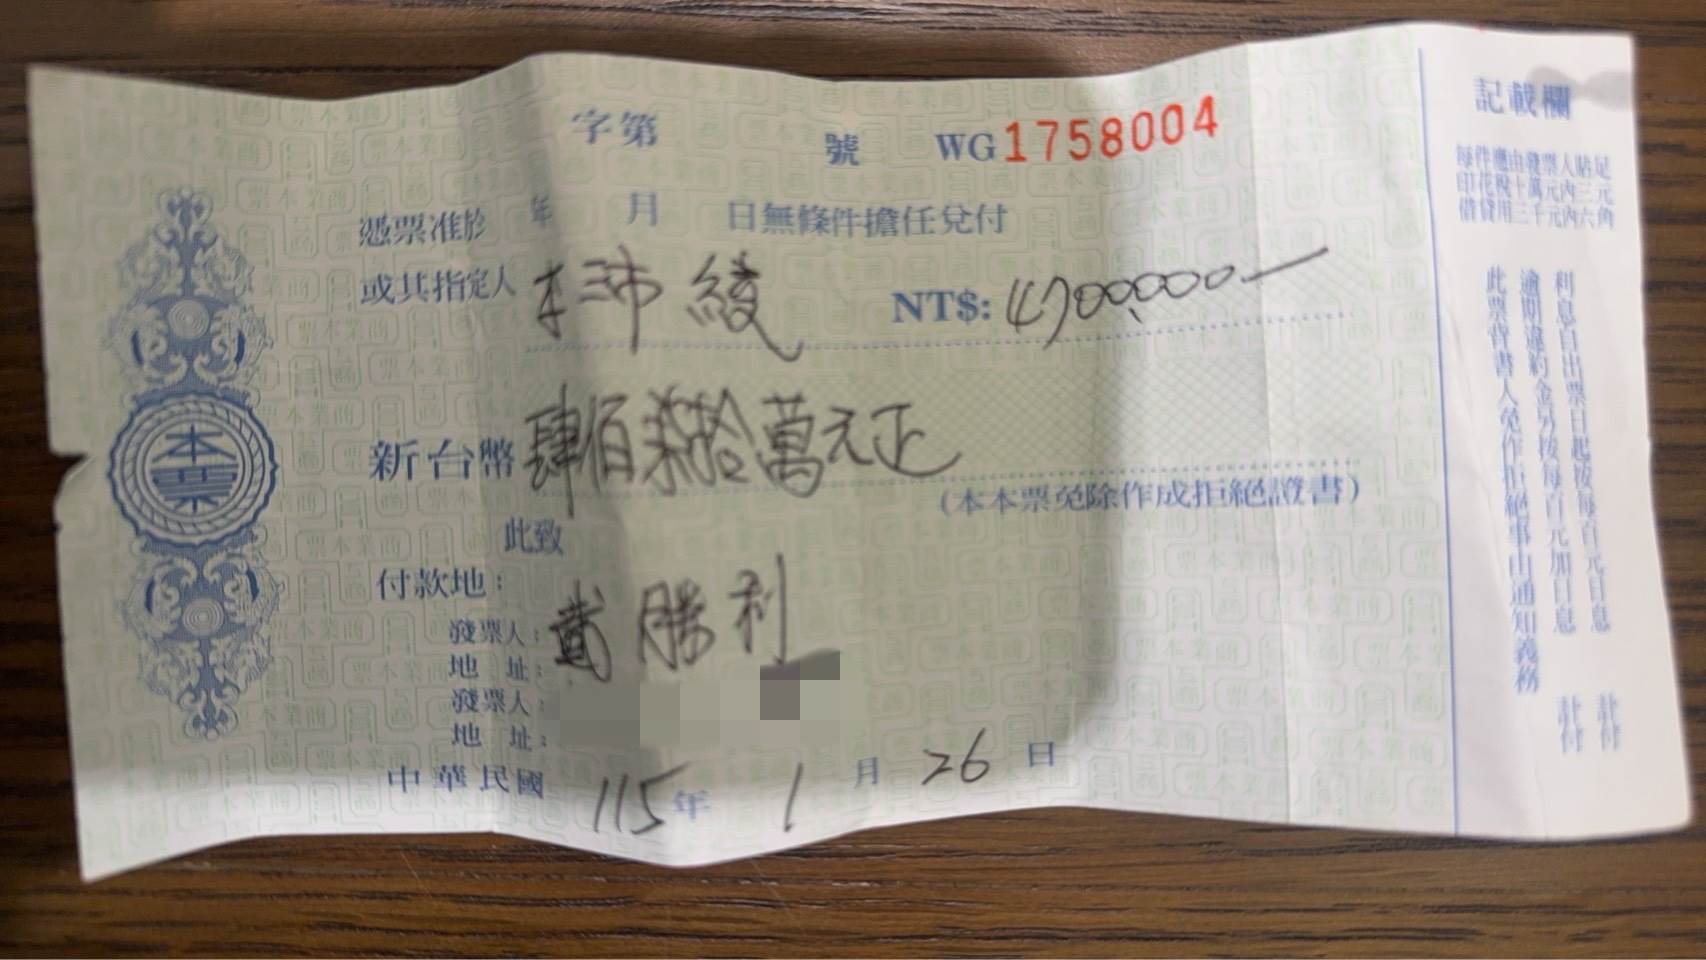 字第 號 WG1758004
憑票准於 年 月 日無條件擔任兌付
或其指定人 沛綾 NT$: 4700,000
新台幣 肆佰柒拾萬元正
(本本票免除作成拒絕證書)
此致
付款地:
發票人: 戴勝利
地 址:
發票人:
地 址:
中華民國 115年 1月 26日
本票
記載欄
每件應由發票人貼足
印花稅十萬元內三元
借貸用三千元內六角
利息自出票日起按每百元日息 計付
逾期違約金另按每百元加日息 計付
此票背書人免作拒絕事由通知義務